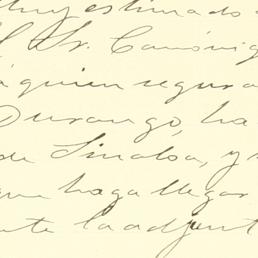 Muy estimado
Sr. Canónig
á quien segura
Durango, ha
de Sinaloa, y
que haga llegar
nte la adjunt